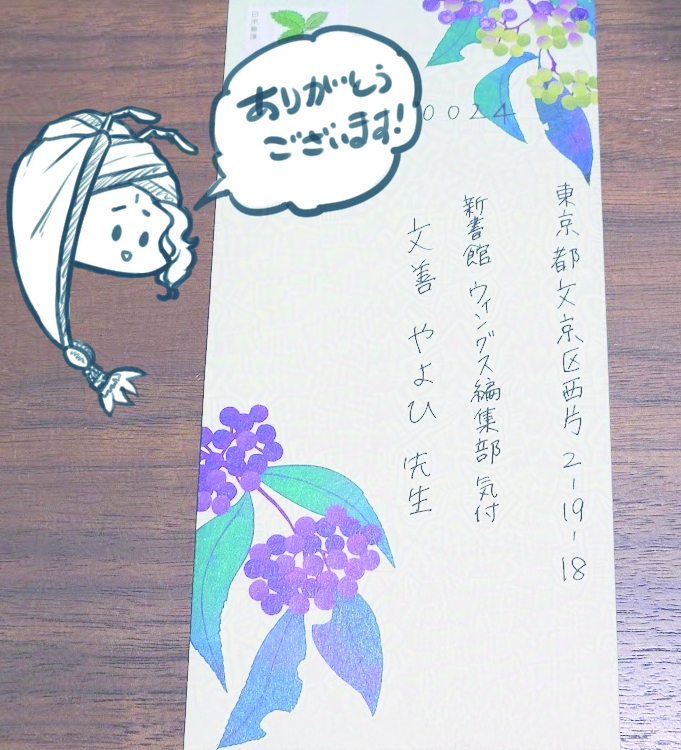 日本郵便
ありがとう
ございます!
0024
東京都文京区西片 2-19-18
新書館 ウィングス編集部 気付
文善 やよひ 先生